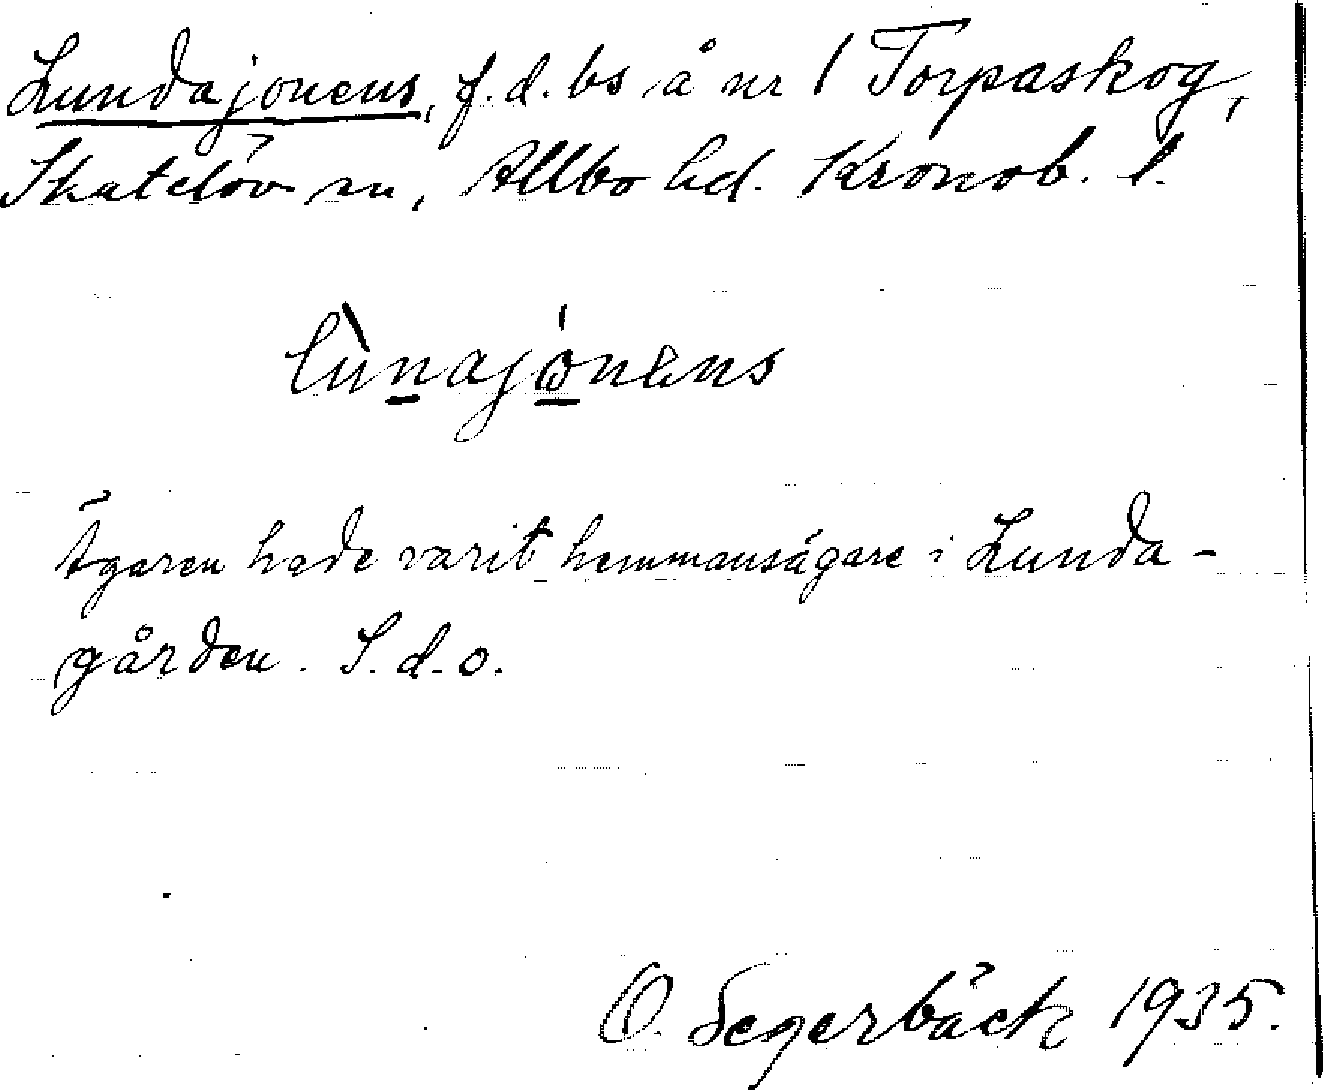 Lundajonens, f.d. bs å nr 1 Torpaskog,
Skatelöv sn, Allbo hd. Kronob. l.
lùnajónens
Ägaren hade varit hemmansägare i Lunda-
gården. S.d.o.
O. Segerbäck 1935.